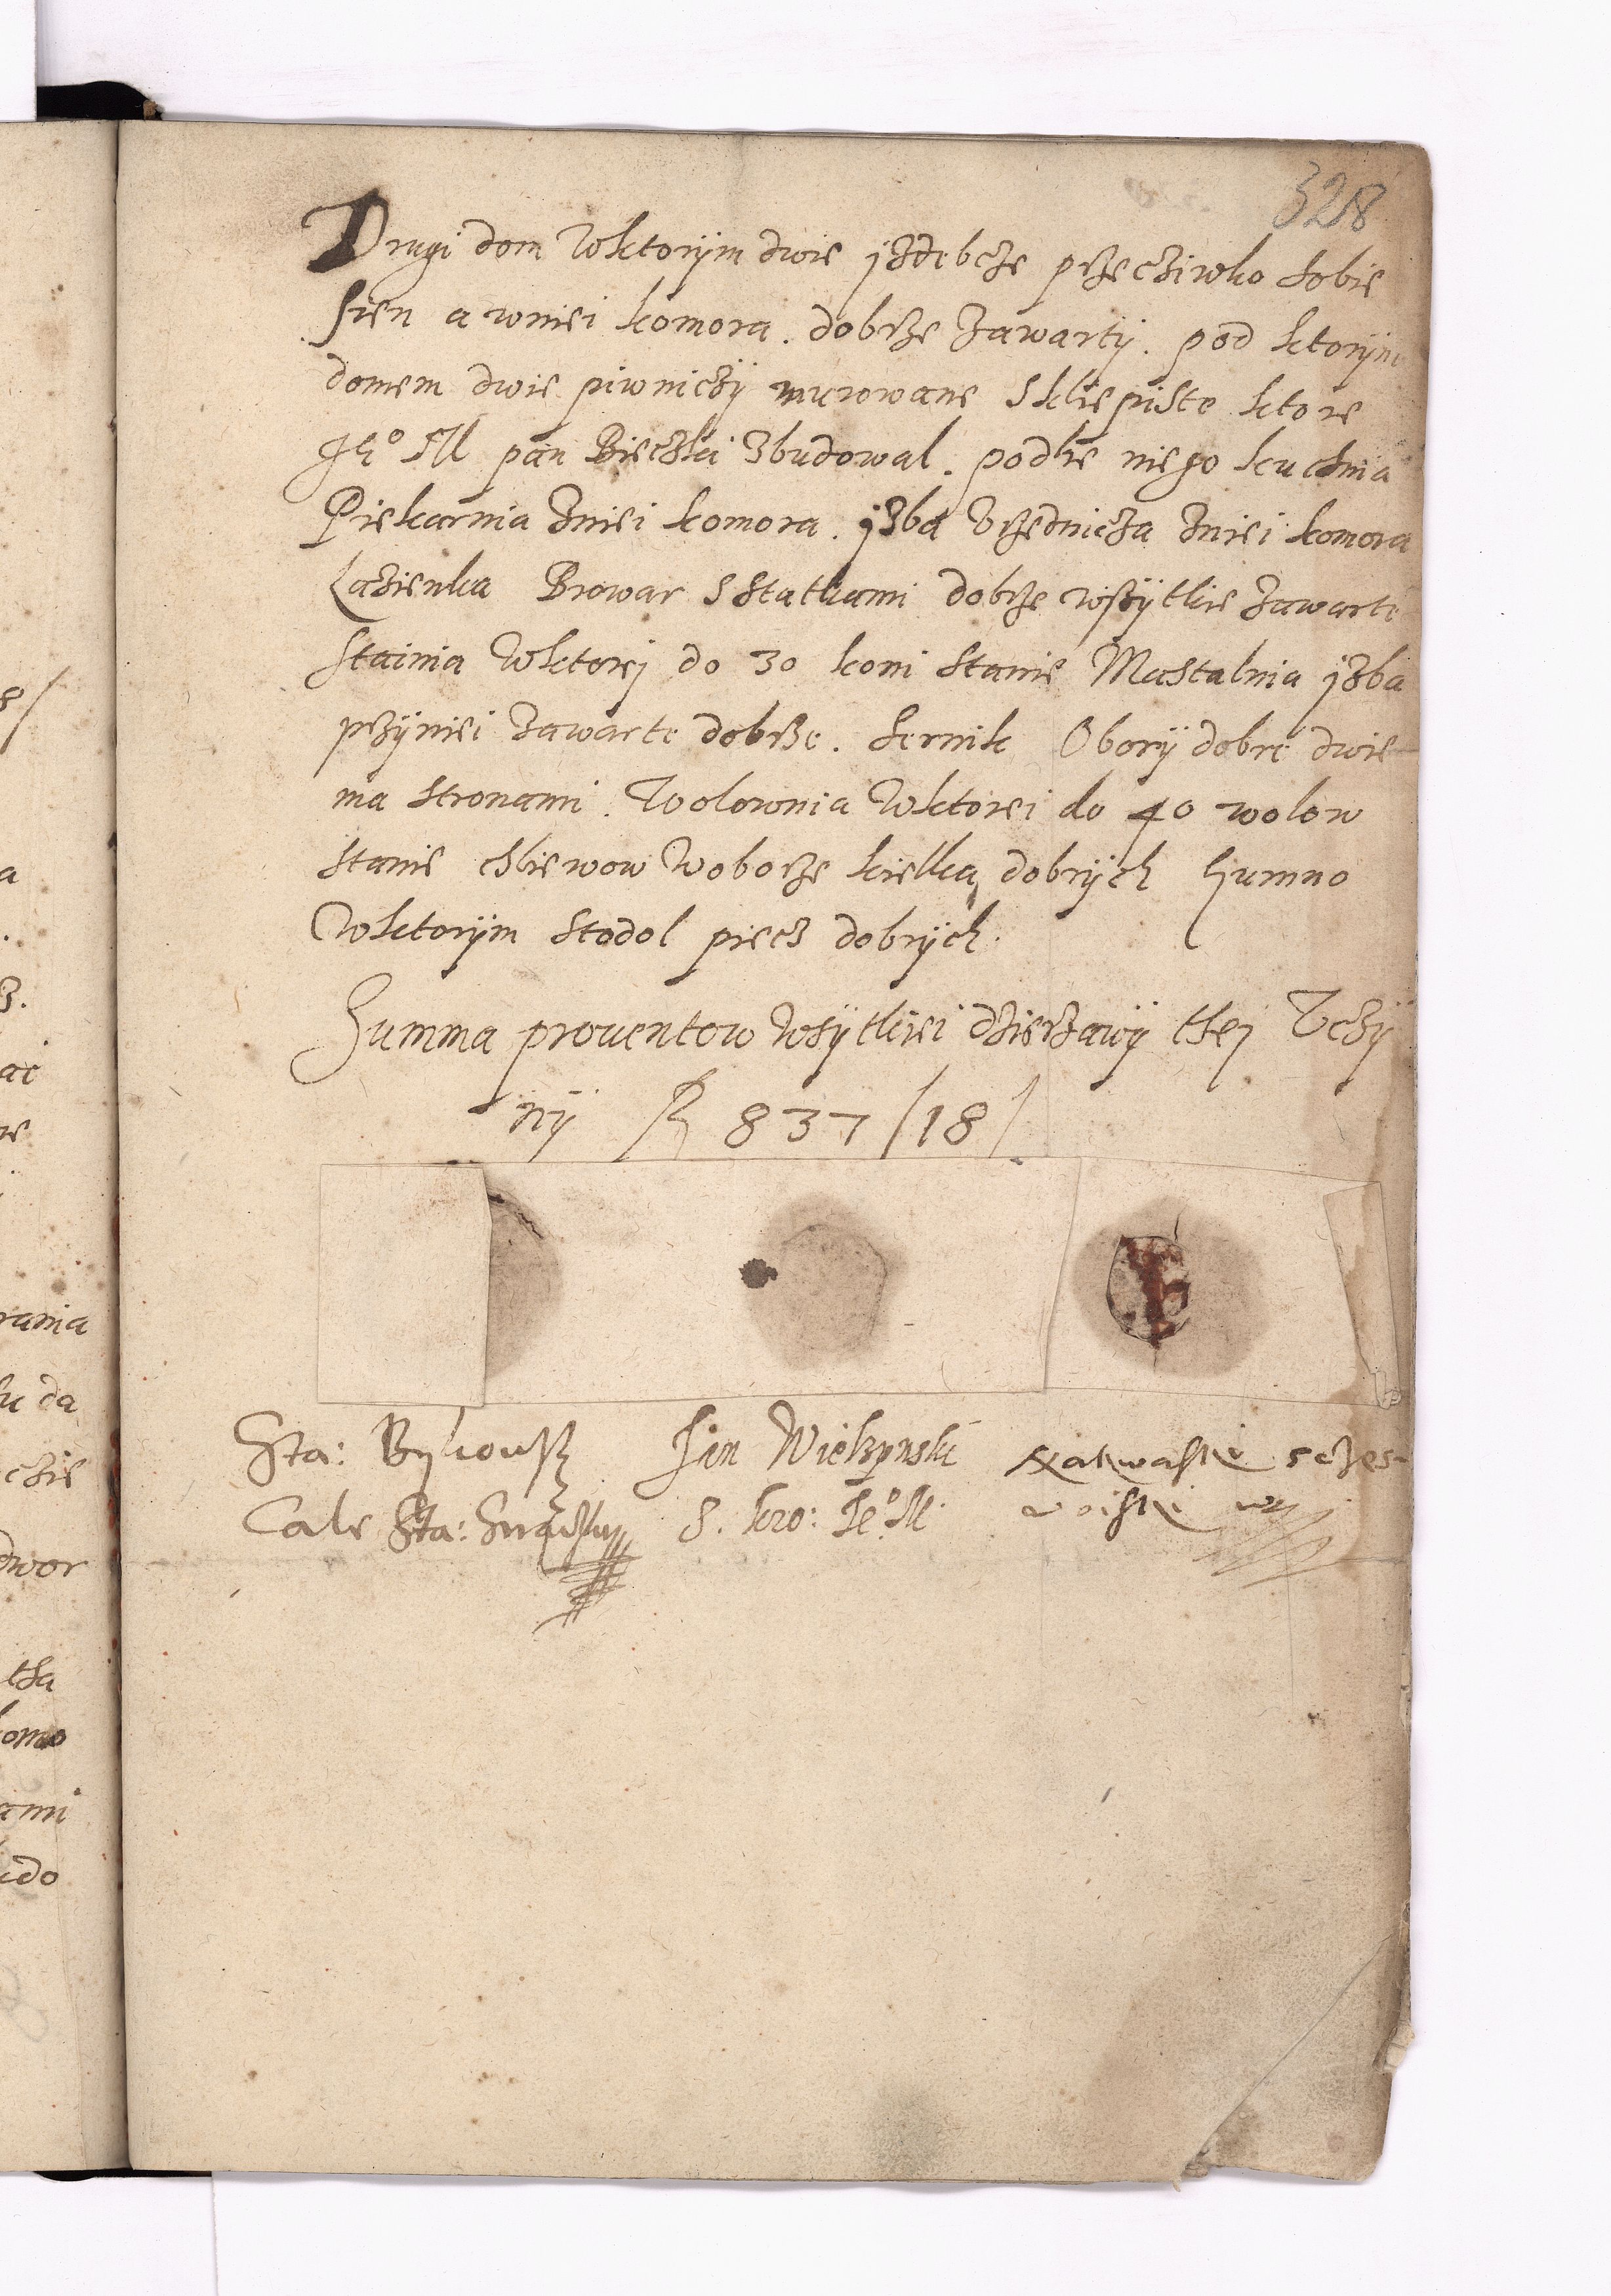 328
Drugi dom Wktorÿm dwie jzdebcze przecziwko sobie
sien a wniei komora. dobrze zawartÿ. pod ktorÿm
domem dwie piwniczÿ murowane Skliepiste ktore
Je° M pan Bieczki zbudowal. podlie niego kuchnia
Piekarnia zniei komora. jzba Vrzednicza zniei komora
Lazienka Browar Sstatkami dobrze wszÿtkie zawarte
stainia Wktorej do 30 koni stanie Mastalnia jzba
przÿniei zawarte dobrze. Sernik Oborÿ dobre dwie
ma stronami. Wolownia Wktorei do 40 wolow
stanie chliewow Woborze kielka dobrÿch humno
Wktorÿm stodol piecz dobrÿch.
Summa prouentow Wsÿtkiei dzierzawÿ thej Vczÿ
nÿ fl 837/18/
Sta: Bykowsk Jan Wielzynski
Cale Sta: S. kro: Je° M.
a
rania
da
czie
dwor
tha
komo
ami
do